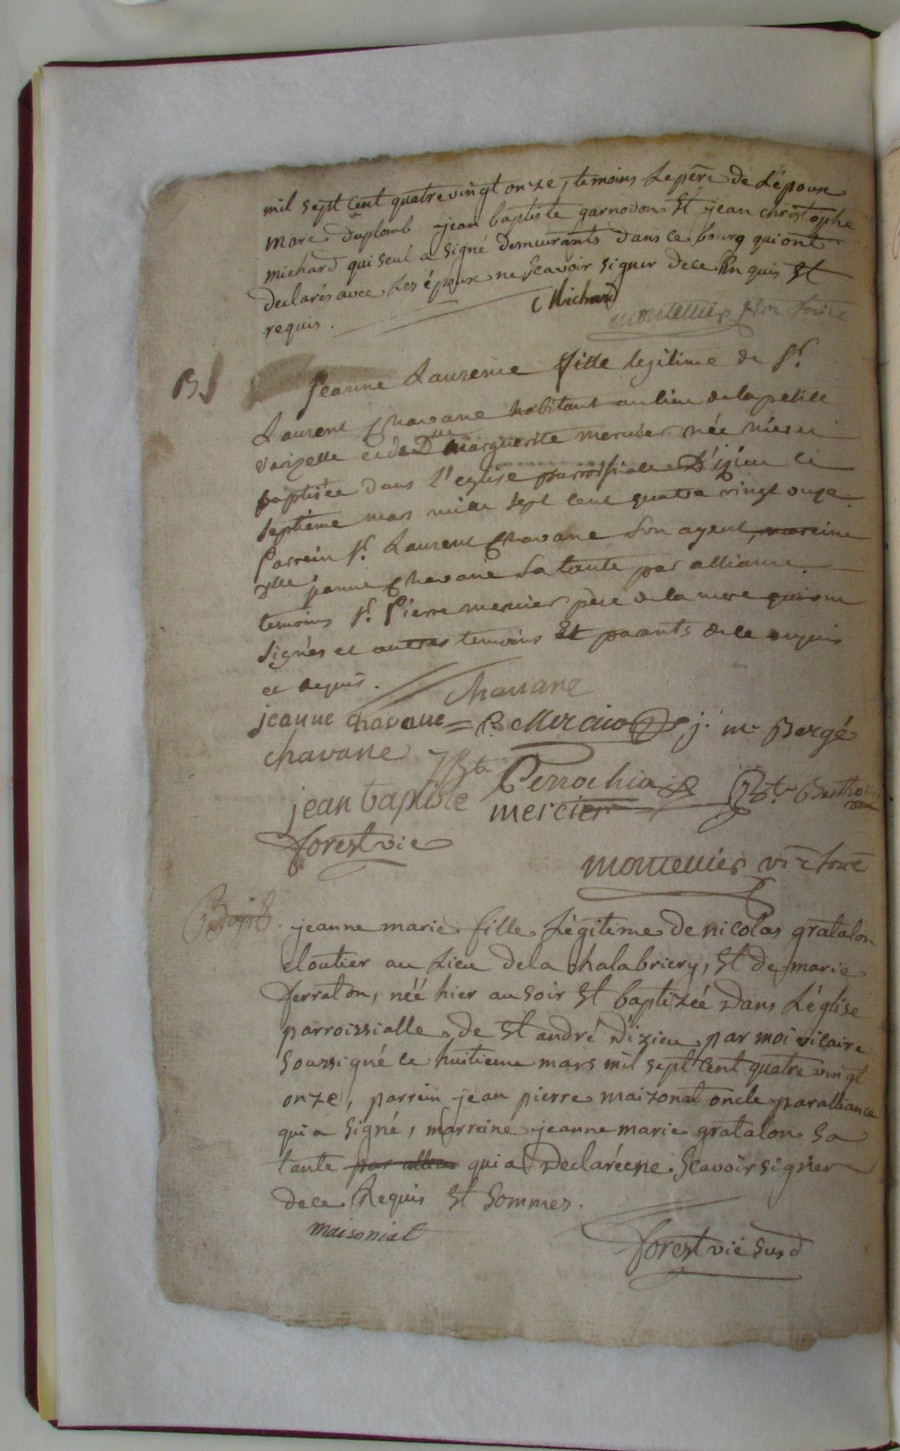 mil sept cent quatre vingt onze, temoins le père de l'épouse
marc duplomb jean baptiste garnodon Et jean christophe
michard qui seul a signé demeurants dans ce bourg qui ont
declarés avec les époux ne scavoir signer de ce Enquis Et
requis.
Michard
montellier
B
jeanne Laurence fille legitime de Sr.
Laurent Chavane habitant au lieu de la petite
varizelle et de Dlle marguerite mercier née hier et
baptisée dans l'eglise parroissiale d'izieu le
septième mars mille sept cent quatre vingt onze
Parrein Sr. Laurent Chavane son ayeul, mareine
Dlle jeanne Chavane sa tante par alliance.
temoins Sr. Pierre mercier père de la mere qui ont
signés et autres temoins Et de ce enquis
et requis.
Chavane
jeanne chavane = P. Mercier j. m. Bergé
chavane J Bte Perrochia Bte
jean baptiste mercier
forest vie
montellier
Bapt. jeanne marie fille Légitime de nicolas gratalon
cloutier au Lieu de la chalabriery, Et de marie
ferraton, néé hier au soir Et baptizéé dans L'église
parroissialle de St andré d'izieu par moi vicaire
soussigné le huitieme mars mil sept cent quatre vingt
onze, parrein jean pierre maizonat oncle par alliance
qui a signé, marreine jeanne marie gratalon sa
tante par allia qui a declaréé ne scavoir signer
de ce Requis Et sommés.
maisoniat
forest vié susd